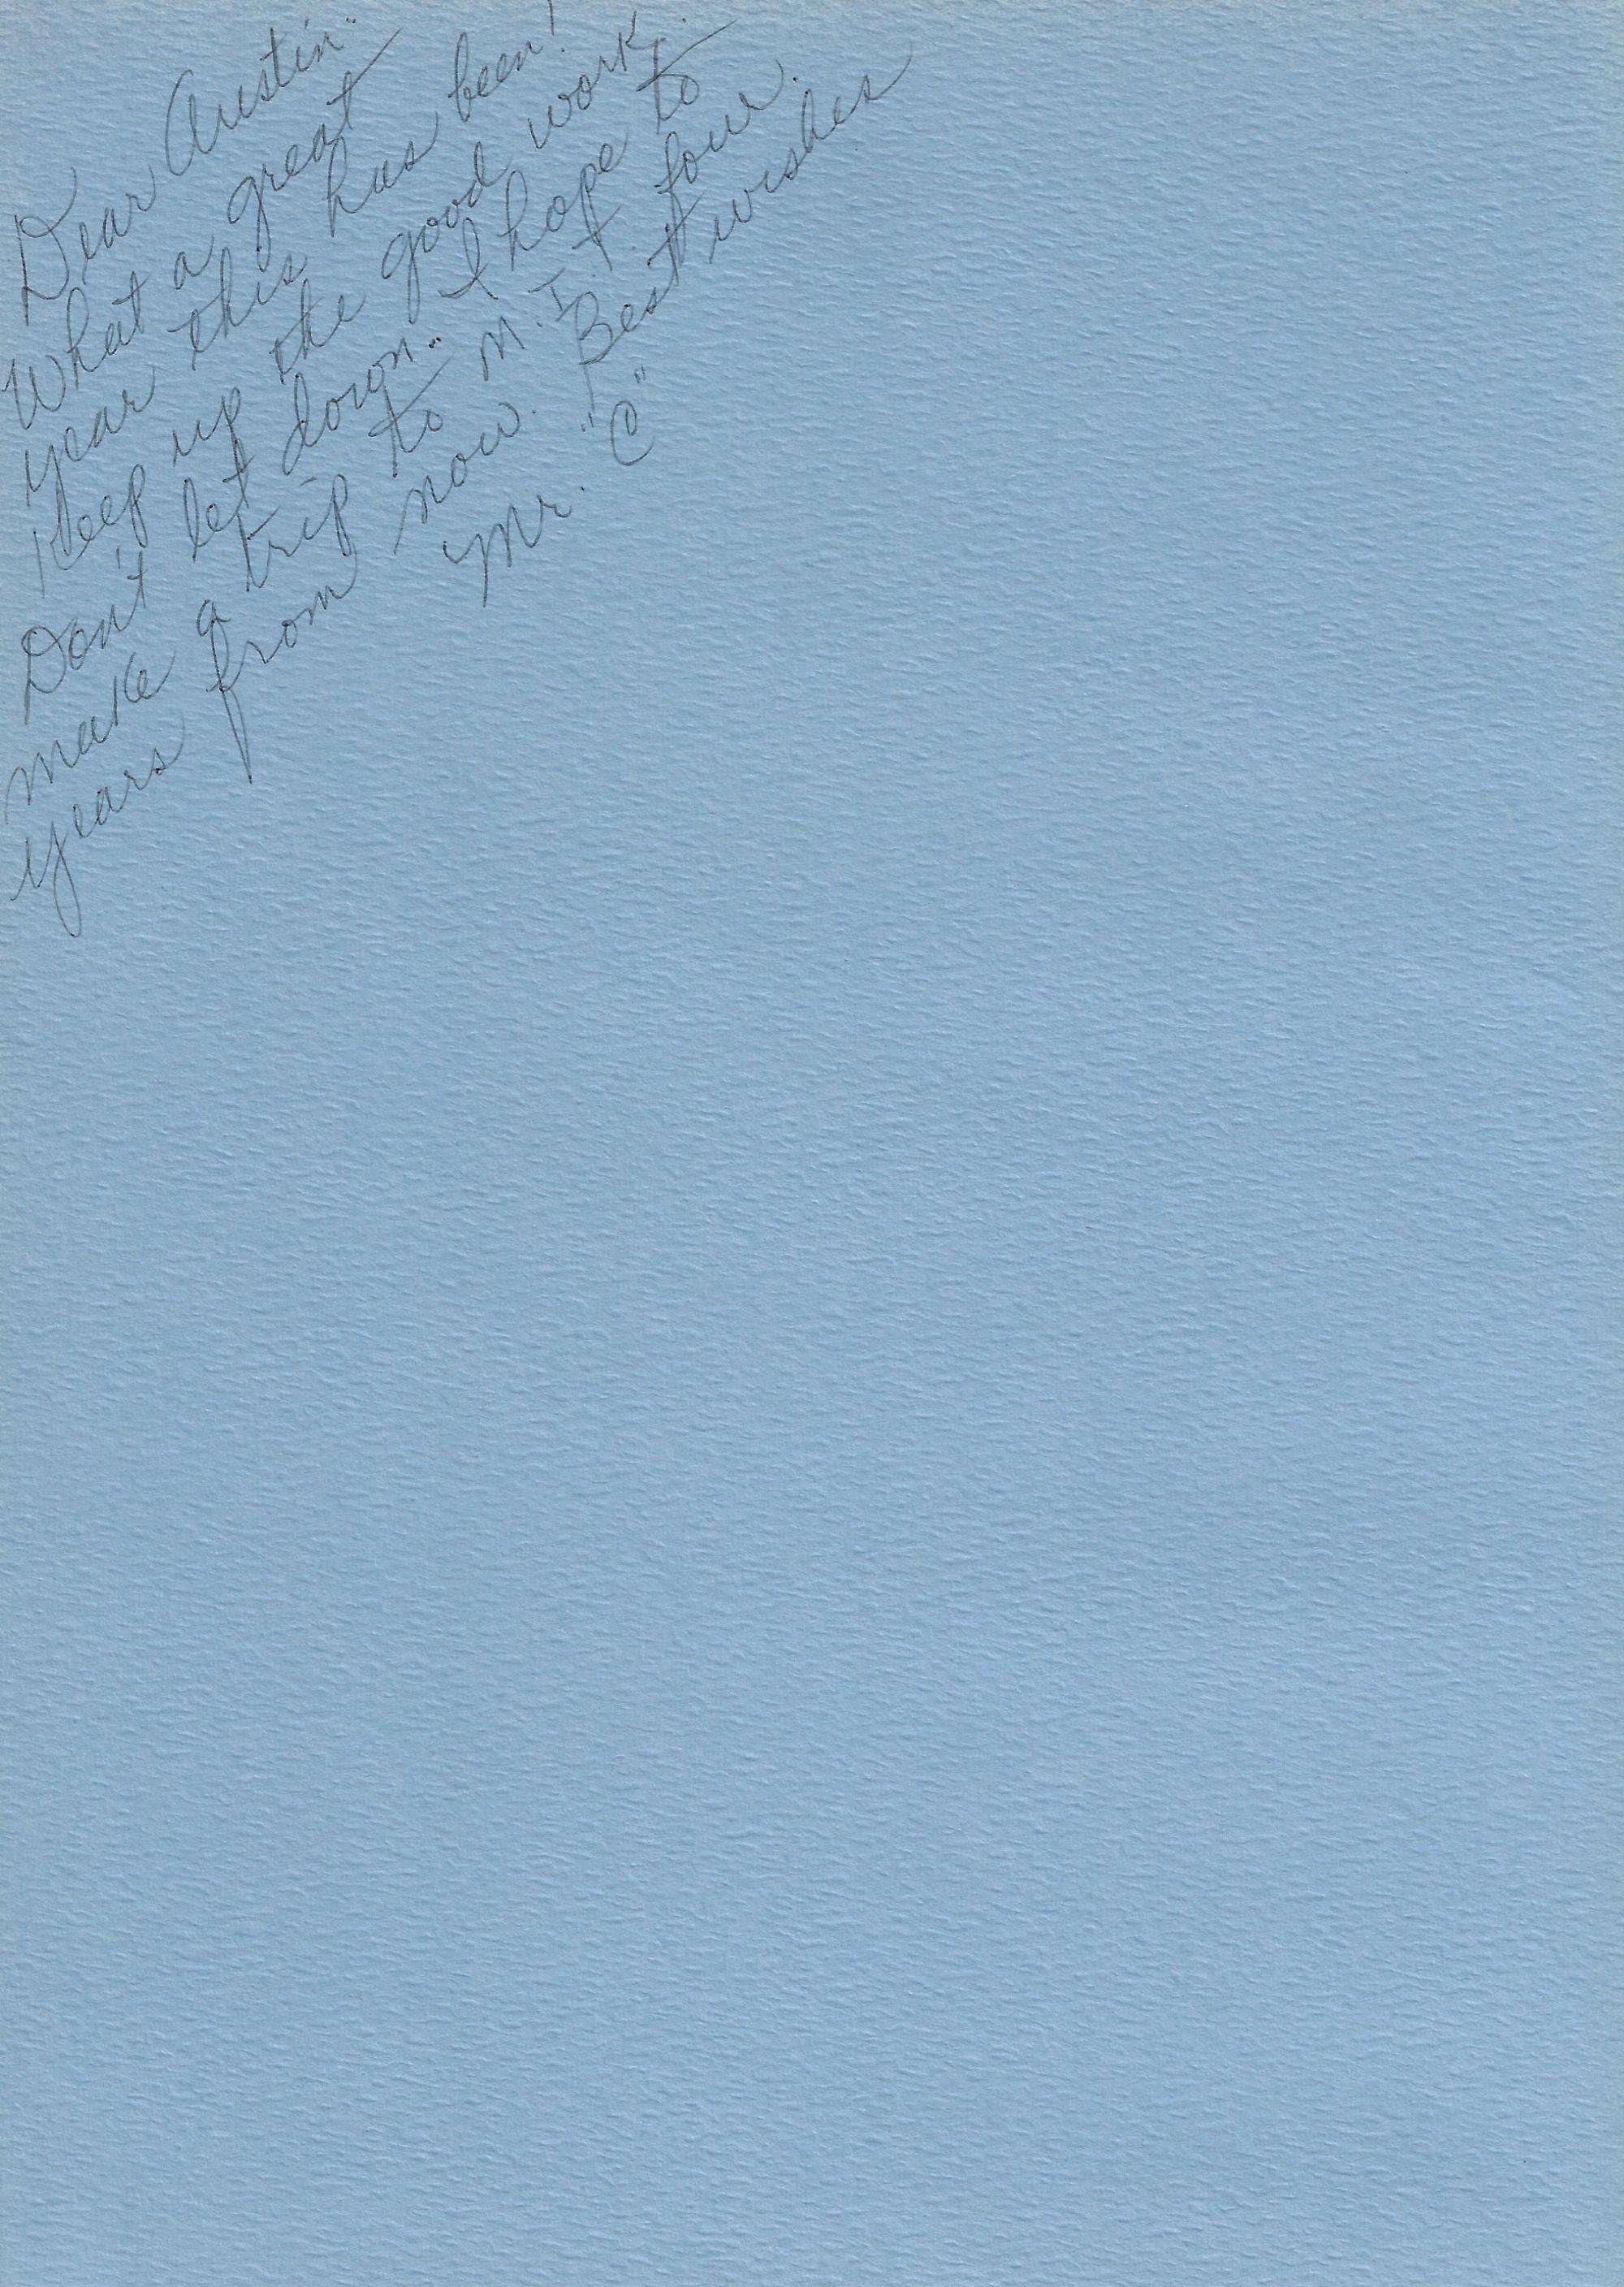 Dear Austin:
What a great
year this has been!
Keep up the good work.
Don't let down. I hope to
make a trip to M.I.T. four
years from now. Best wishes
Mr. "C"